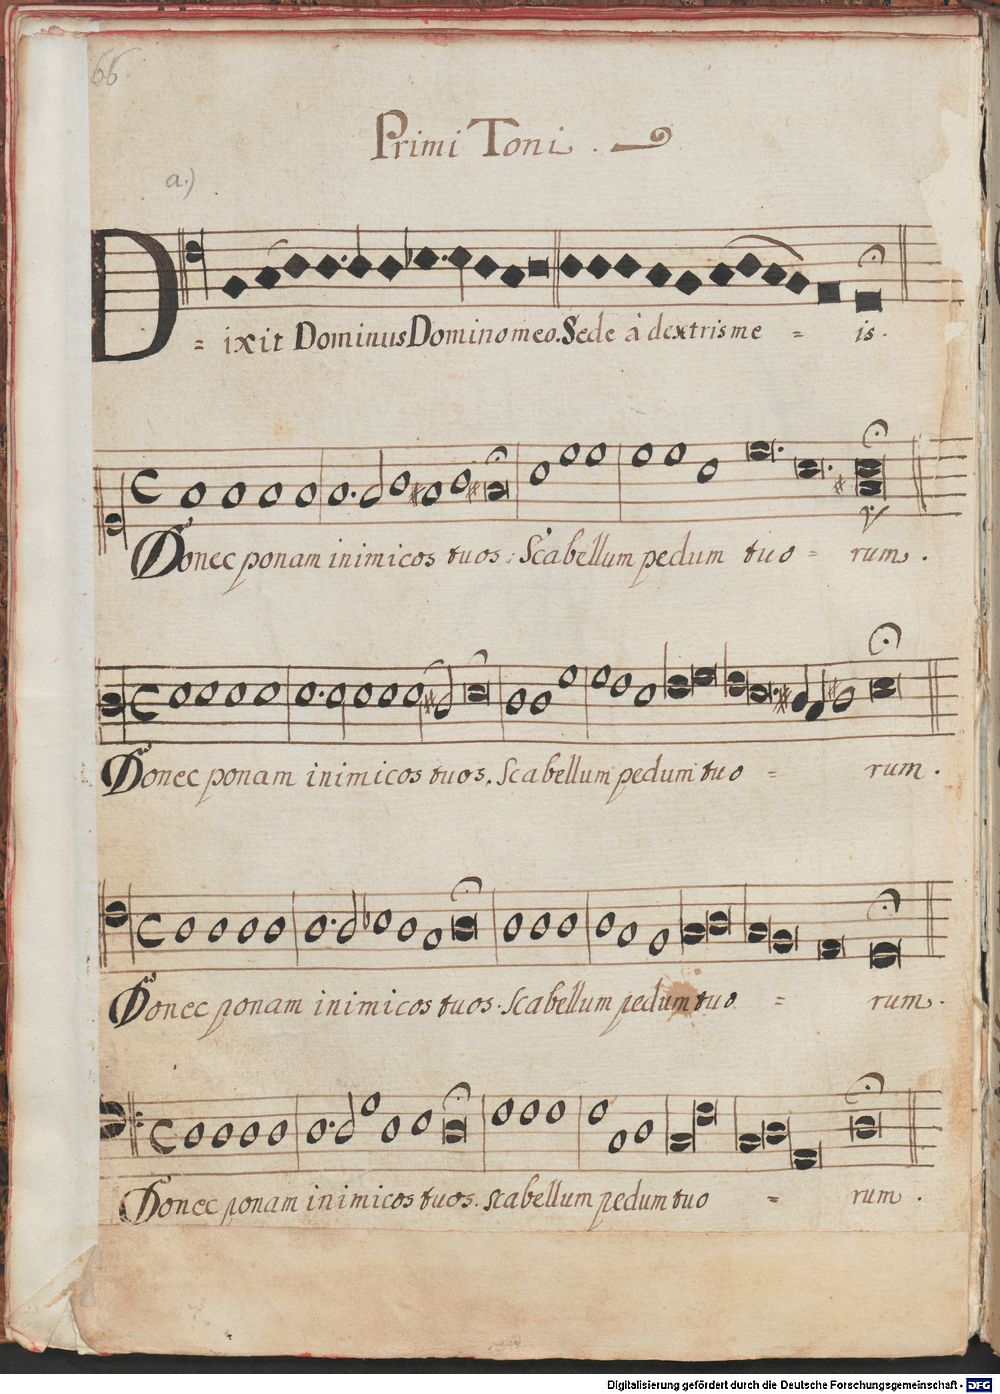 66
Primi Toni.
a.)
D = ixit Dominus Domino meo. Sede à dextris me = is.
Donec ponam inimicos tuos: Scabellum pedum tuo = rum.
Donec ponam inimicos tuos. Scabellum pedum tuo = rum.
Donec ponam inimicos tuos. Scabellum pedum tuo = rum.
Donec ponam inimicos tuos. scabellum pedum tuo = rum.
Digitalisierung gefördert durch die Deutsche Forschungsgemeinschaft - DFG